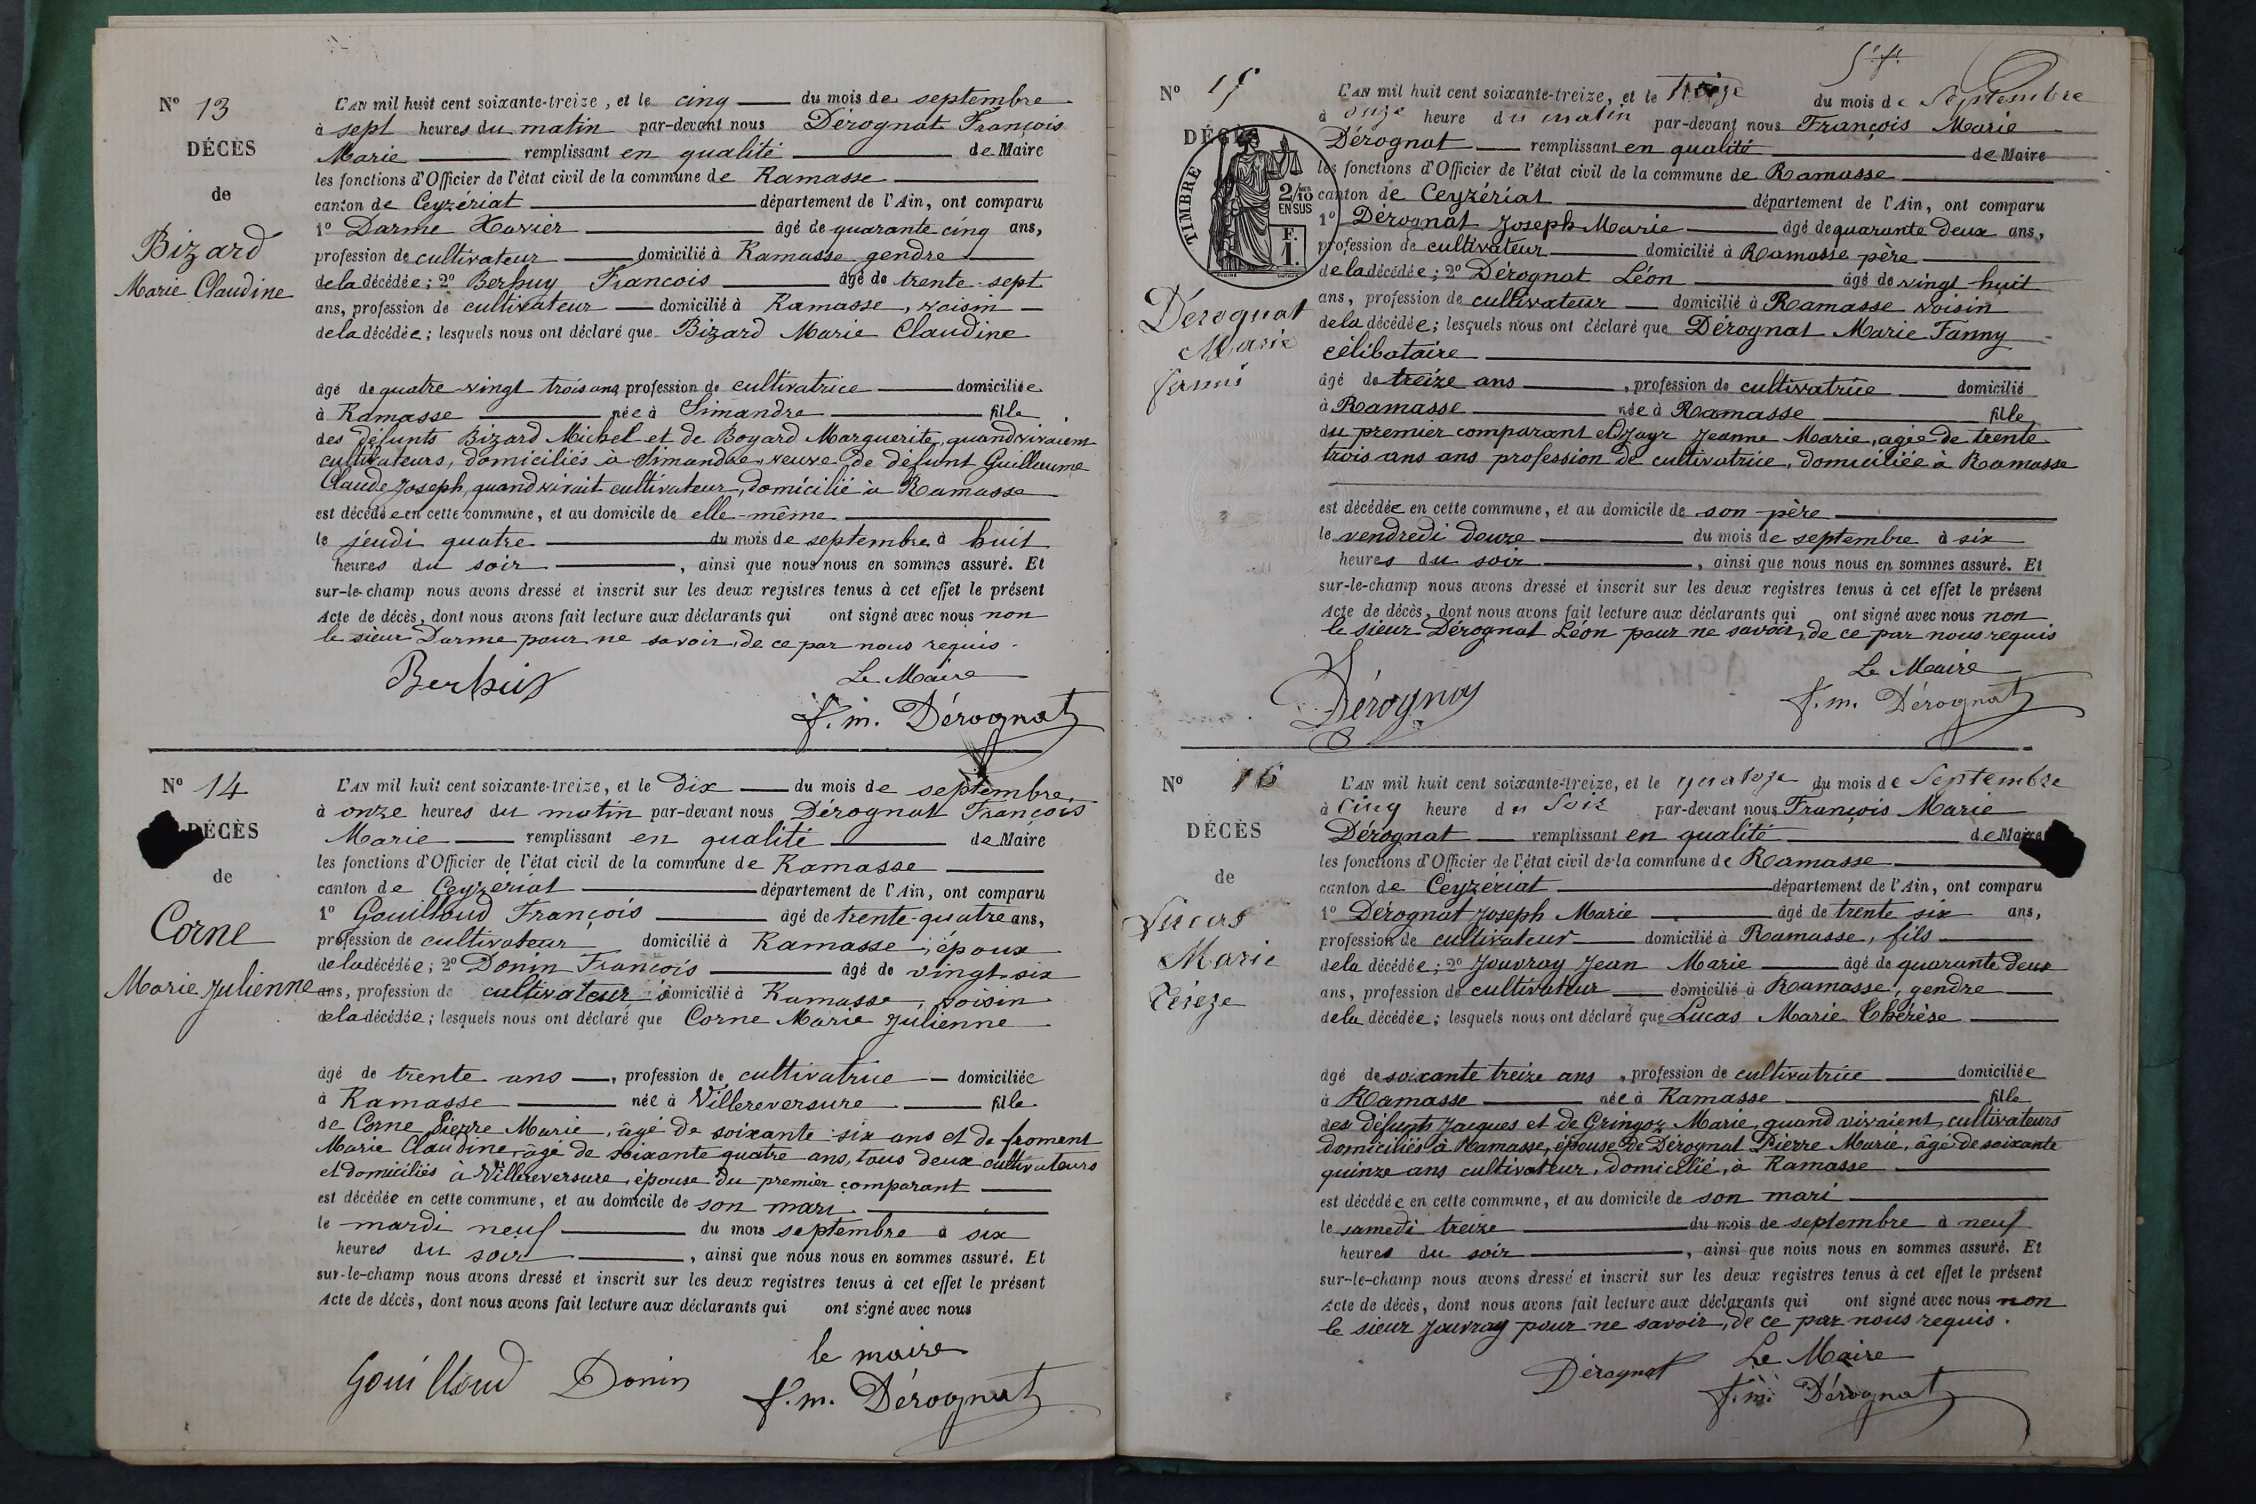 Nº 13
DÉCÈS
de
Bizard
Marie Claudine
L'AN mil huit cent soixante-treize, et le cinq du mois de septembre
à sept heures du matin par-devant nous Dérognat François
Marie remplissant en qualité de Maire
les fonctions d'Officier de l'état civil de la commune de Ramasse
canton de Ceyzériat département de l'Ain, ont comparu
1º Darme Xavier âgé de quarante cinq ans,
profession de cultivateur domicilié à Ramasse gendre
de la décédée; 2º Berhuy François âgé de trente-sept
ans, profession de cultivateur domicilié à Ramasse, voisin
de la décédée; lesquels nous ont déclaré que Bizard Marie Claudine
âgé de quatre-vingt trois ans, profession de cultivatrice domiciliée
à Ramasse née à Simandre fille
des défunts Bizard Michel et de Boyard Marguerite, quand vivaient
cultivateurs, domiciliés à Simandre, veuve de défunt Guillaume
Claude Joseph, quand vivait cultivateur, domicilié à Ramasse
est décédée en cette commune, et au domicile de elle-même
le jeudi quatre du mois de septembre à huit
heures du soir, ainsi que nous nous en sommes assuré. Et
sur-le-champ nous avons dressé et inscrit sur les deux registres tenus à cet effet le présent
Acte de décès, dont nous avons fait lecture aux déclarants qui ont signé avec nous non
le sieur Darme pour ne savoir, de ce par nous requis.
Berhuy
Le Maire
f. m. Dérognat
Nº 14
DÉCÈS
de
Corne
Marie Julienne
L'AN mil huit cent soixante-treize, et le Dix du mois de septembre
à onze heures du matin par-devant nous Dérognat François
Marie remplissant en qualité de Maire
les fonctions d'Officier de l'état civil de la commune de Ramasse
canton de Ceyzériat département de l'Ain, ont comparu
1º Gouilloud François âgé de trente-quatre ans,
profession de cultivateur domicilié à Ramasse, époux
de la décédée; 2º Donin François âgé de vingt-six
ans, profession de cultivateur domicilié à Ramasse, voisin
de la décédée; lesquels nous ont déclaré que Corne Marie Julienne
âgé de trente ans, profession de cultivatrice domiciliée
à Ramasse née à Villereversure fille
de Corne Pierre Marie, âgé de soixante-six ans et de froment
Marie Claudine, âgé de soixante quatre ans, tous deux cultivateurs
et domiciliés à Villereversure, épouse du premier comparant
est décédée en cette commune, et au domicile de son mari
le mardi neuf du mois septembre à six
heures du soir, ainsi que nous nous en sommes assuré. Et
sur-le-champ nous avons dressé et inscrit sur les deux registres tenus à cet effet le présent
Acte de décès, dont nous avons fait lecture aux déclarants qui ont signé avec nous
Gouilloud Donin
le maire
f. m. Dérognat
Nº 15
DÉCÈS
TIMBRE
2/10
EN SUS
F.
1.
Dérognat
Marie
L'AN mil huit cent soixante-treize, et le treize du mois de Septembre
à onze heure du matin par-devant nous François Marie
Dérognat remplissant en qualité de Maire
les fonctions d'Officier de l'état civil de la commune de Ramasse
canton de Ceyzériat département de l'Ain, ont comparu
1º Dérognat Joseph Marie âgé de quarante deux ans,
profession de cultivateur domicilié à Ramasse père
de la décédée; 2º Dérognat Léon âgé de vingt huit
ans, profession de cultivateur domicilié à Ramasse voisin
de la décédée; lesquels nous ont déclaré que Dérognat Marie Fanny
célibataire
âgé de treize ans, profession de cultivatrice domicilié
à Ramasse née à Ramasse fille
du premier comparant et Jayr Jeanne Marie, agée de trente
trois ans ans profession de cultivatrice, domiciliée à Ramasse
est décédée en cette commune, et au domicile de son père
le vendredi douze du mois de septembre à six
heures du soir, ainsi que nous nous en sommes assuré. Et
sur-le-champ nous avons dressé et inscrit sur les deux registres tenus à cet effet le présent
Acte de décès, dont nous avons fait lecture aux déclarants qui ont signé avec nous non
le sieur Dérognat Léon pour ne savoir, de ce par nous requis
Le Maire
Dérognat
f. m. Dérognat
Nº 16
DÉCÈS
de
Lucas
Marie
Térèze
L'AN mil huit cent soixante-treize, et le quatorze du mois de Septembre
à cinq heure du Soir par-devant nous François Marie
Dérognat remplissant en qualité de Maire
les fonctions d'Officier de l'état civil de la commune de Ramasse
canton de Ceyzériat département de l'Ain, ont comparu
1º Dérognat Joseph Marie âgé de trente six ans,
profession de cultivateur domicilié à Ramasse, fils
de la décédée; 2º Jouvray Jean Marie âgé de quarante deux
ans, profession de cultivateur domicilié à Ramasse, gendre
de la décédée; lesquels nous ont déclaré que Lucas Marie Thérèse
âgé de soixante treize ans, profession de cultivatrice domiciliée
à Ramasse née à Ramasse fille
des défunts Jacques et de Gringoz Marie, quand vivaient cultivateurs
domiciliés à Ramasse, épouse de Dérognat Pierre Marie, âgé de soixante
quinze ans cultivateur, domicilié, à Ramasse
est décédée en cette commune, et au domicile de son mari
le samedi treize du mois de septembre à neuf
heures du soir, ainsi que nous nous en sommes assuré. Et
sur-le-champ nous avons dressé et inscrit sur les deux registres tenus à cet effet le présent
Acte de décès, dont nous avons fait lecture aux déclarants qui ont signé avec nous non
le sieur Jouvray pour ne savoir, de ce par nous requis.
Dérognat
Le Maire
f. m. Dérognat